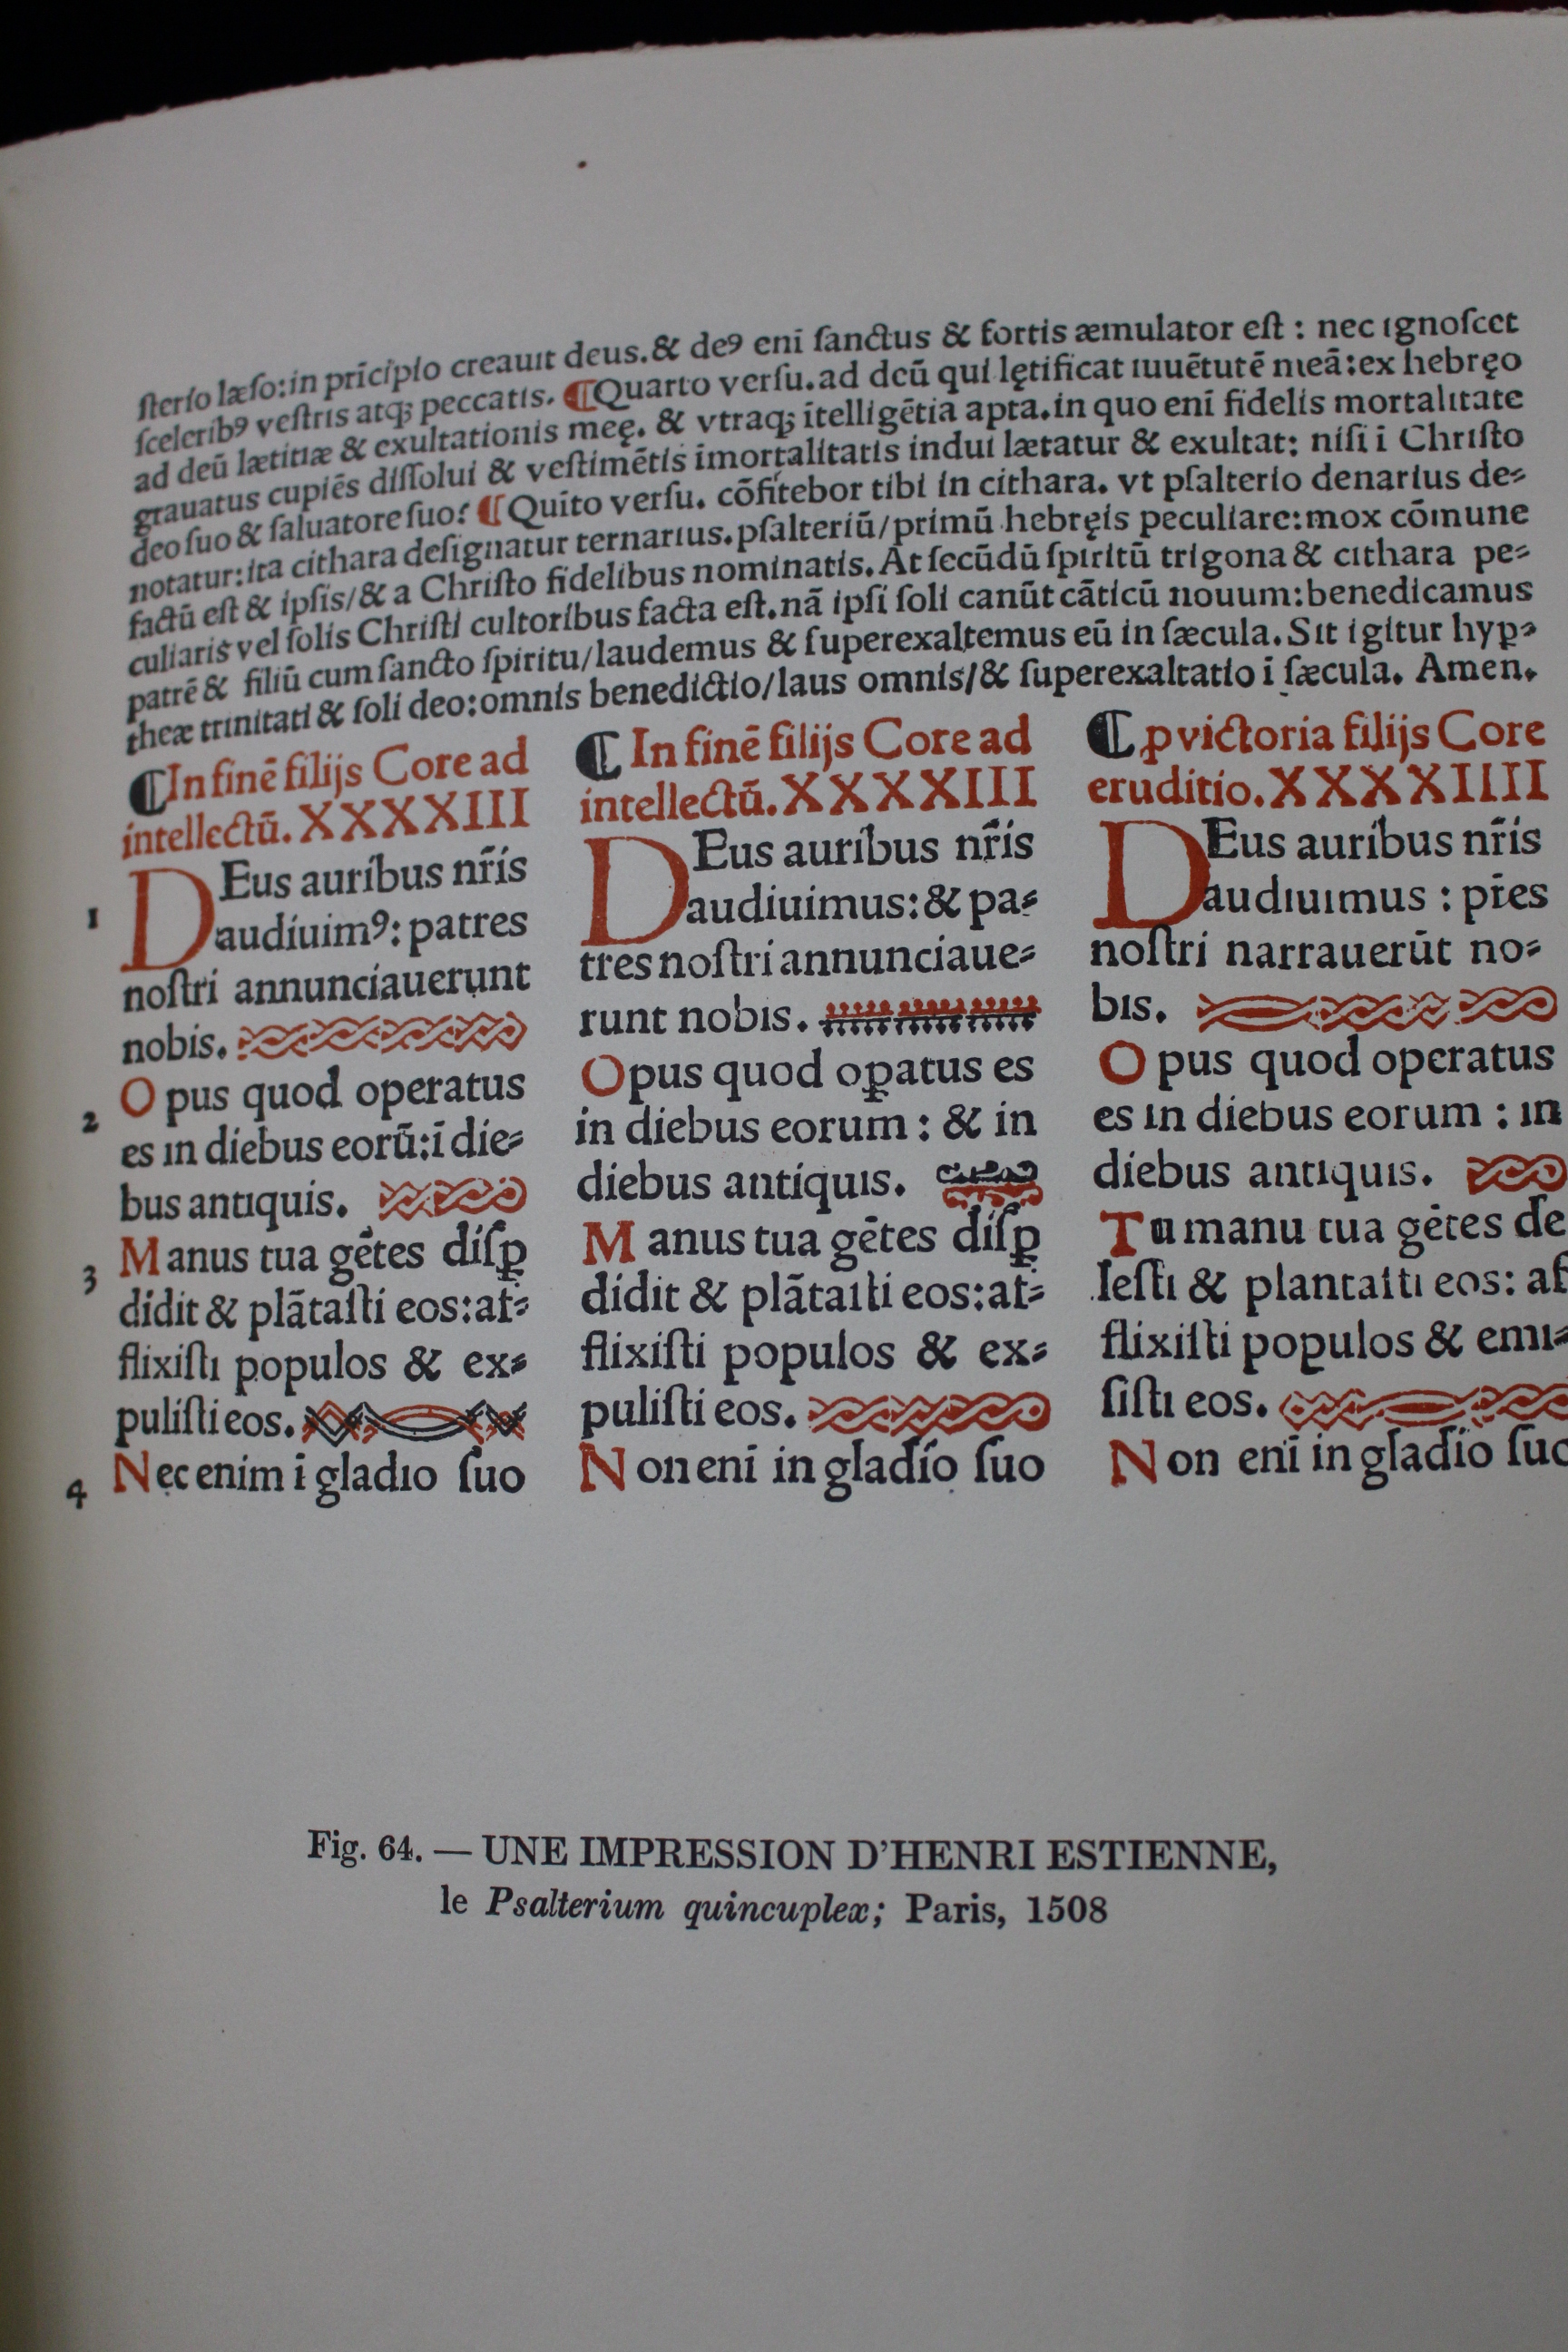 ſterio læſo:in prīcipio creauit deus.& deꝰ enī ſanctus & fortis æmulator eſt : nec ignoſcet
ſceleribꝰ veſtris atqꝫ peccatis. ¶Quarto verſu.ad deū qui lętificat iuuētutē meā:ex hebręo
ad deū lætitiæ & exultationis meę. & vtraqꝫ ītelligētia apta.in quo enī fidelis mortalitate
grauatus cupiēs diſſolui & veſtimētis imortalitatis indui lætatur & exultat: niſi ī Chriſto
deo ſuo & ſaluatore ſuo? ¶Quīto verſu. cōfitebor tibi in cithara. vt pſalterio denarius de⸗
notatur:ita cithara deſignatur ternarius.pſalteriū/primū hebręis peculiare:mox cōmune
factū eſt & ipſis/& a Chriſto fidelibus nominatis.At ſecūdū ſpiritū trigona & cithara pe⸗
culiaris vel ſolis Chriſti cultoribus facta eſt.nā ipſi ſoli canūt cāticū nouum:benedicamus
patrē & filiū cum ſancto ſpiritu/laudemus & ſuperexaltemus eū in ſæcula.Sit igitur hyꝑ⸗
theæ trinitati & ſoli deo:omnis benedictio/laus omnis/& ſuperexaltatio ī ſæcula. Amen.
¶In finē filijs Core ad
intellectū.XXXXIII
1 DEus auribus nr̄is
audiuimꝰ: patres
noſtri annunciauerunt
nobis.
2 Opus quod operatus
es in diebus eorū:ī die⸗
bus antiquis.
3 Manus tua gētes diſꝑ
didit & plātaſti eos:af⸗
flixiſti populos & ex⸗
puliſti eos.
4 Nec enim ī gladio ſuo
¶ In finē filijs Core ad
intellectū.XXXXIII
DEus auribus nr̄is
audiuimus:& pa⸗
tres noſtri annunciaue⸗
runt nobis.
Opus quod oꝑatus es
in diebus eorum : & in
diebus antiquis.
Manus tua gētes diſꝑ
didit & plātaſti eos:af⸗
flixiſti populos & ex⸗
puliſti eos.
Non enī in gladio ſuo
¶ ꝓ victoria filijs Core
eruditio.XXXXIIII
DEus auribus nr̄is
audiuimus : pr̄es
noſtri narrauerūt no⸗
bis.
Opus quod operatus
es in diebus eorum : in
diebus antiquis.
Tu manu tua gētes de
leſti & plantaſti eos: af
flixiſti populos & emi⸗
ſiſti eos.
Non enī in gladio ſuo
Fig. 64. — UNE IMPRESSION D'HENRI ESTIENNE,
le Psalterium quincuplex; Paris, 1508